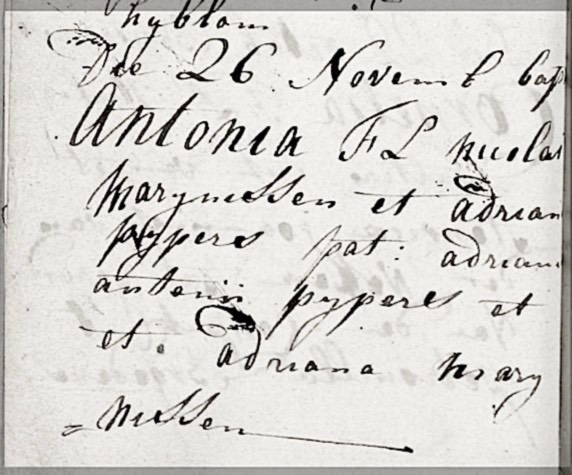 hyblom
Die 26 Novemb bap
Antonia FL nicolai
Marynissen et adrian
pyperes pat: adriana
antonii pyperes et
et. adriana mary
= nissen